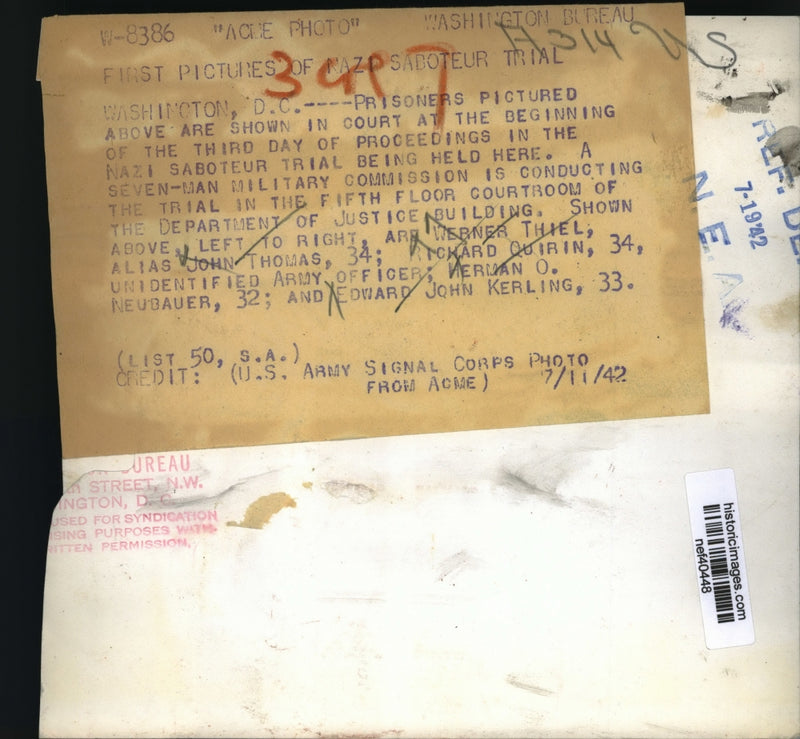 W-8386 "ACME PHOTO" WASHINGTON BUREAU
H314
3497
FIRST PICTURES OF NAZI SABOTEUR TRIAL
WASHINGTON, D.C.----PRISONERS PICTURED
ABOVE ARE SHOWN IN COURT AT THE BEGINNING
OF THE THIRD DAY OF PROCEEDINGS IN THE
NAZI SABOTEUR TRIAL BEING HELD HERE. A
SEVEN-MAN MILITARY COMMISSION IS CONDUCTING
THE TRIAL IN THE FIFTH FLOOR COURTROOM OF
THE DEPARTMENT OF JUSTICE BUILDING. SHOWN
ABOVE, LEFT TO RIGHT, ARE WERNER THIEL,
ALIAS JOHN THOMAS, 34; RICHARD QUIRIN, 34,
UNIDENTIFIED ARMY OFFICER; HERMAN O.
NEUBAUER, 32; AND EDWARD JOHN KERLING, 33.
(LIST 50, S.A.)
CREDIT: (U.S. ARMY SIGNAL CORPS PHOTO
FROM ACME) 7/11/42
REF. DE
7-19'42
N. E. A.
BUREAU
STREET, N.W.
INGTON, D. C.
USED FOR SYNDICATION
ISING PURPOSES WITH-
RITTEN PERMISSION.
historicimages.com
nef40448